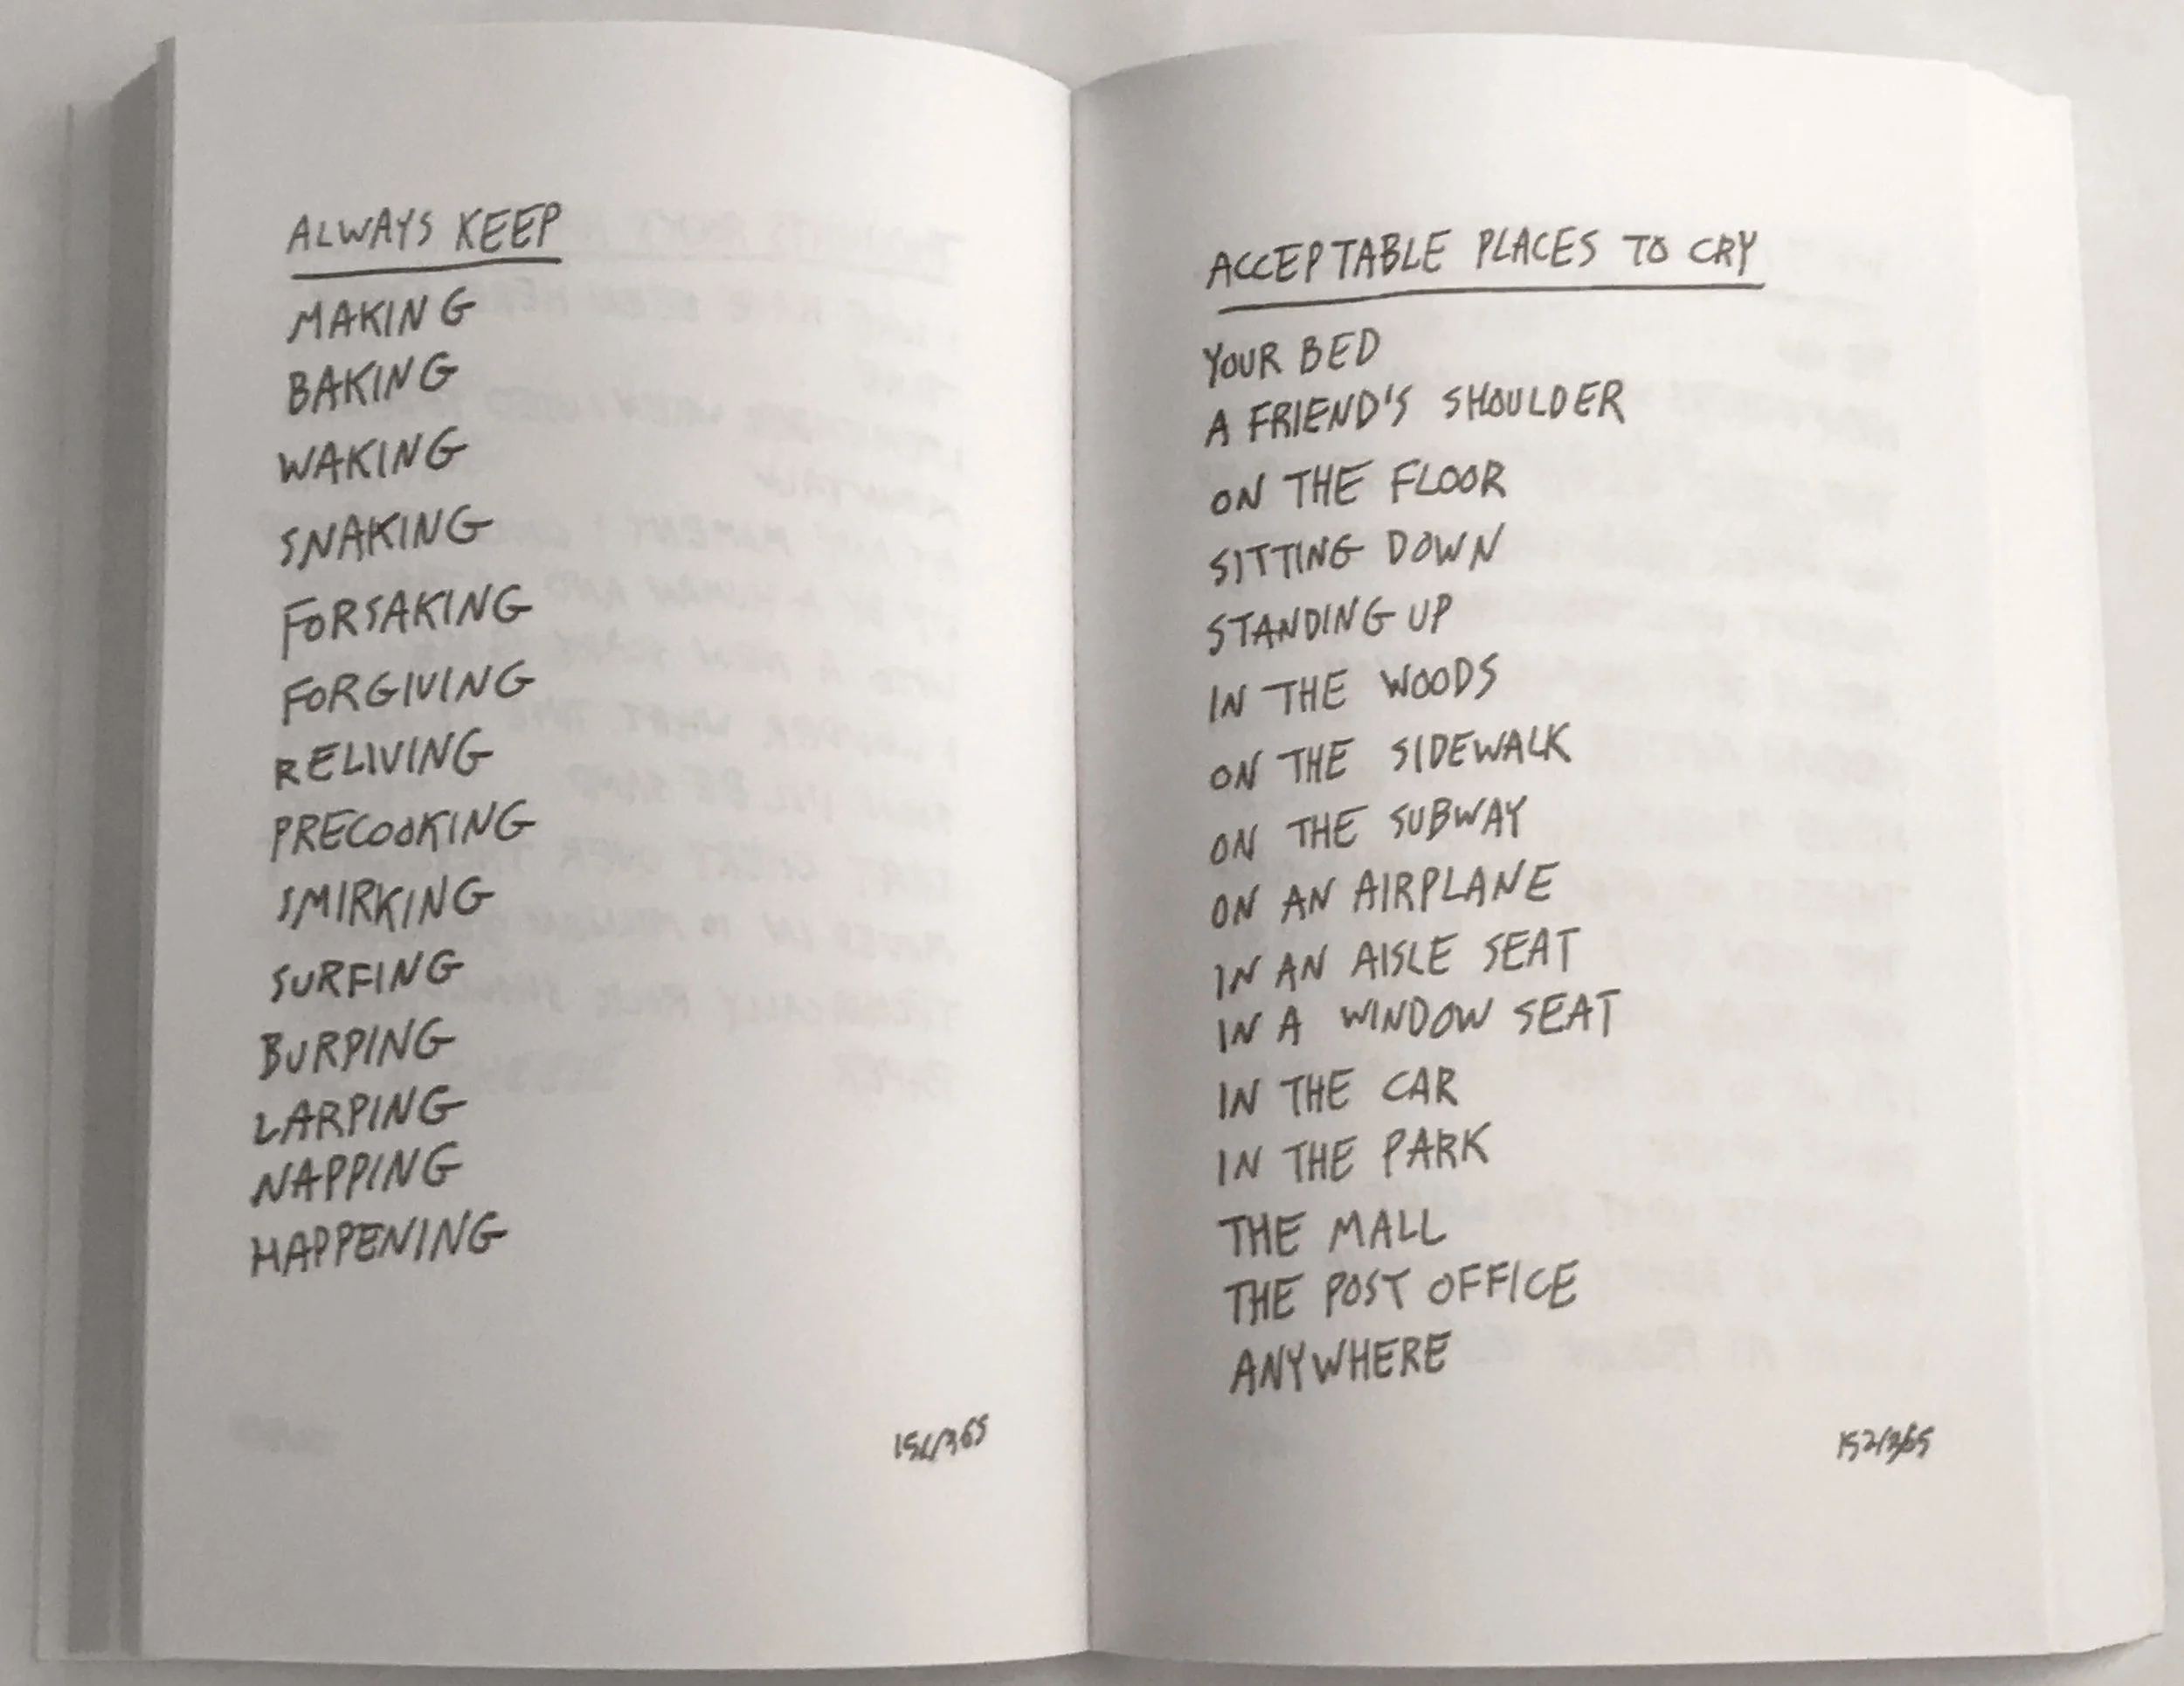 ALWAYS KEEP
MAKING
BAKING
WAKING
SNAKING
FORSAKING
FORGIVING
RELIVING
PRECOOKING
SMIRKING
SURFING
BURPING
LARPING
NAPPING
HAPPENING
151/365
ACCEPTABLE PLACES TO CRY
YOUR BED
A FRIEND'S SHOULDER
ON THE FLOOR
SITTING DOWN
STANDING UP
IN THE WOODS
ON THE SIDEWALK
ON THE SUBWAY
ON AN AIRPLANE
IN AN AISLE SEAT
IN A WINDOW SEAT
IN THE CAR
IN THE PARK
THE MALL
THE POST OFFICE
ANYWHERE
152/365